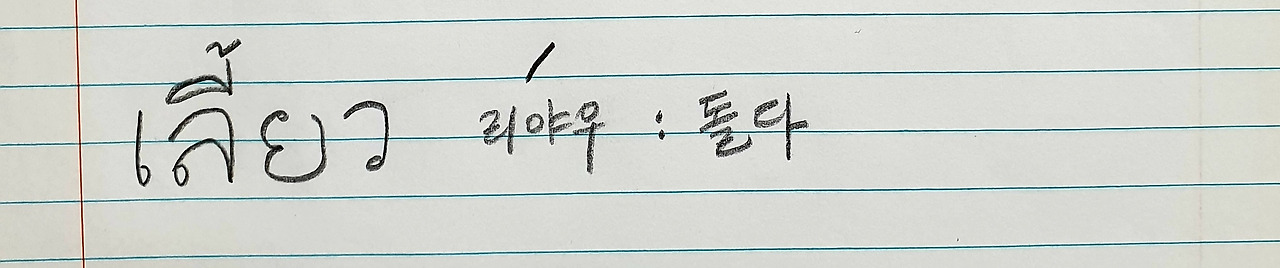 เลี้ยว 리야우 : 돌다